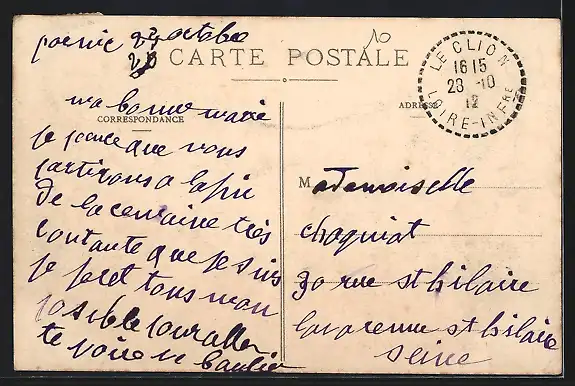 pornic 23 octobre
CARTE POSTALE
10
LE CLION
16 15
28 -10
12
LOIRE-INFRE
ma bonne marie
CORRESPONDANCE
ADRESSE
je pence que nous
partirons a la fin
de la cemaine très
contante que je suis
je feret tous mon
posible pour aller
te voire
Mademoiselle
choquiat
30 rue st hilaire
la varenne st hilaire
Seine